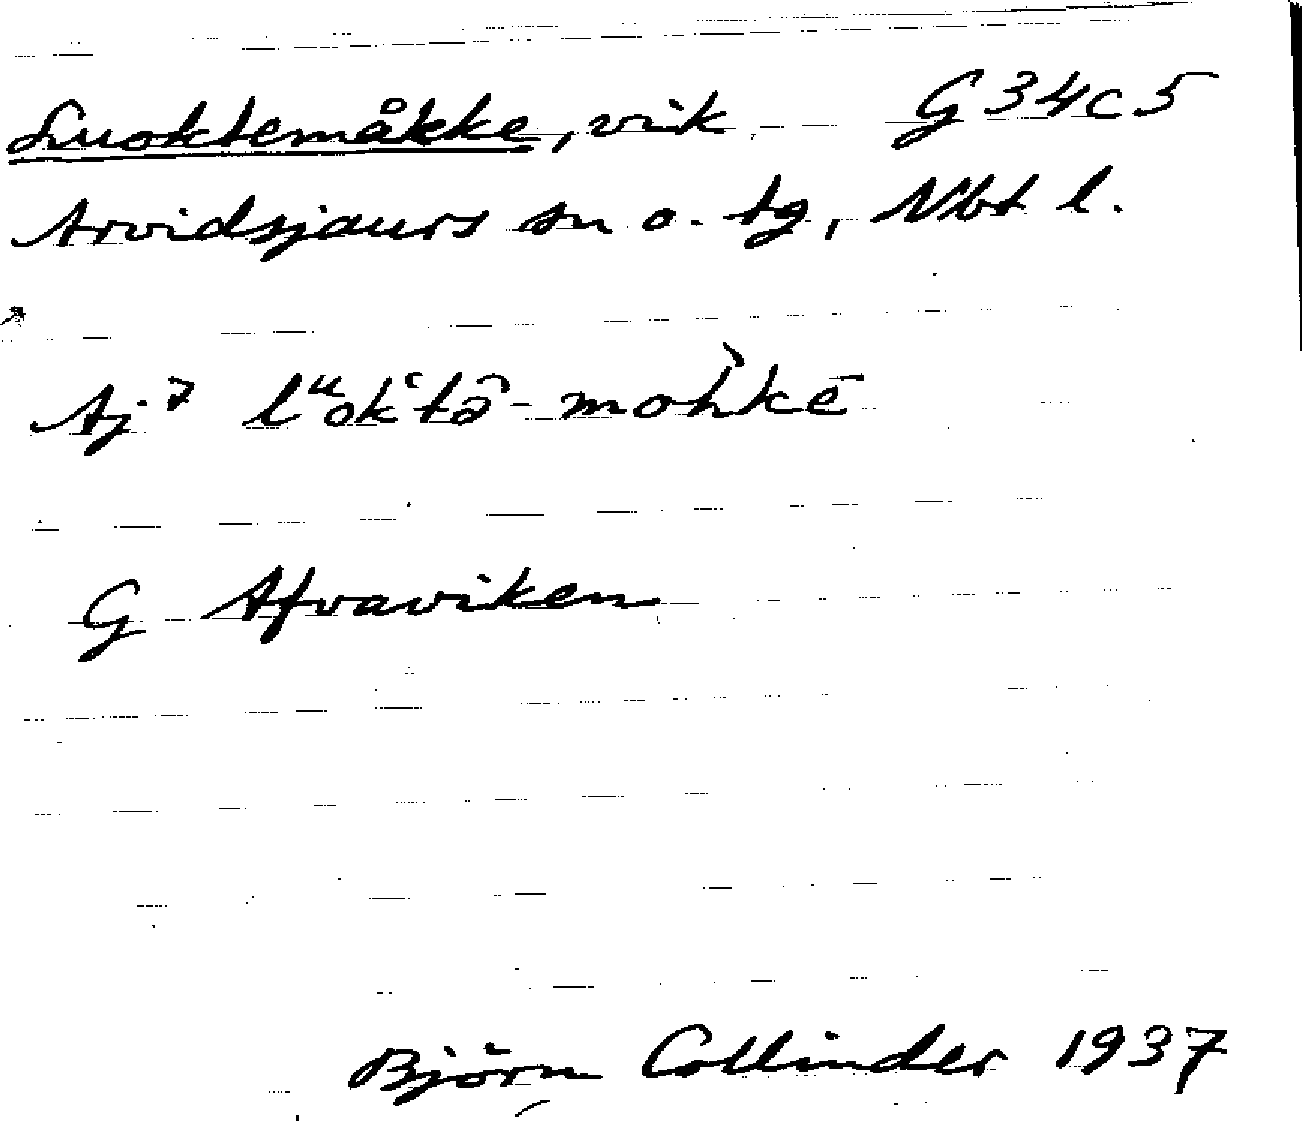 Luoktemåkke, vik G 34c5
Arvidsjaurs sn o. tg, Nbt l.
Aj 7 lᵘokʿtə̂-moh̀kē
G Afvaviken
Björn Collinder 1937